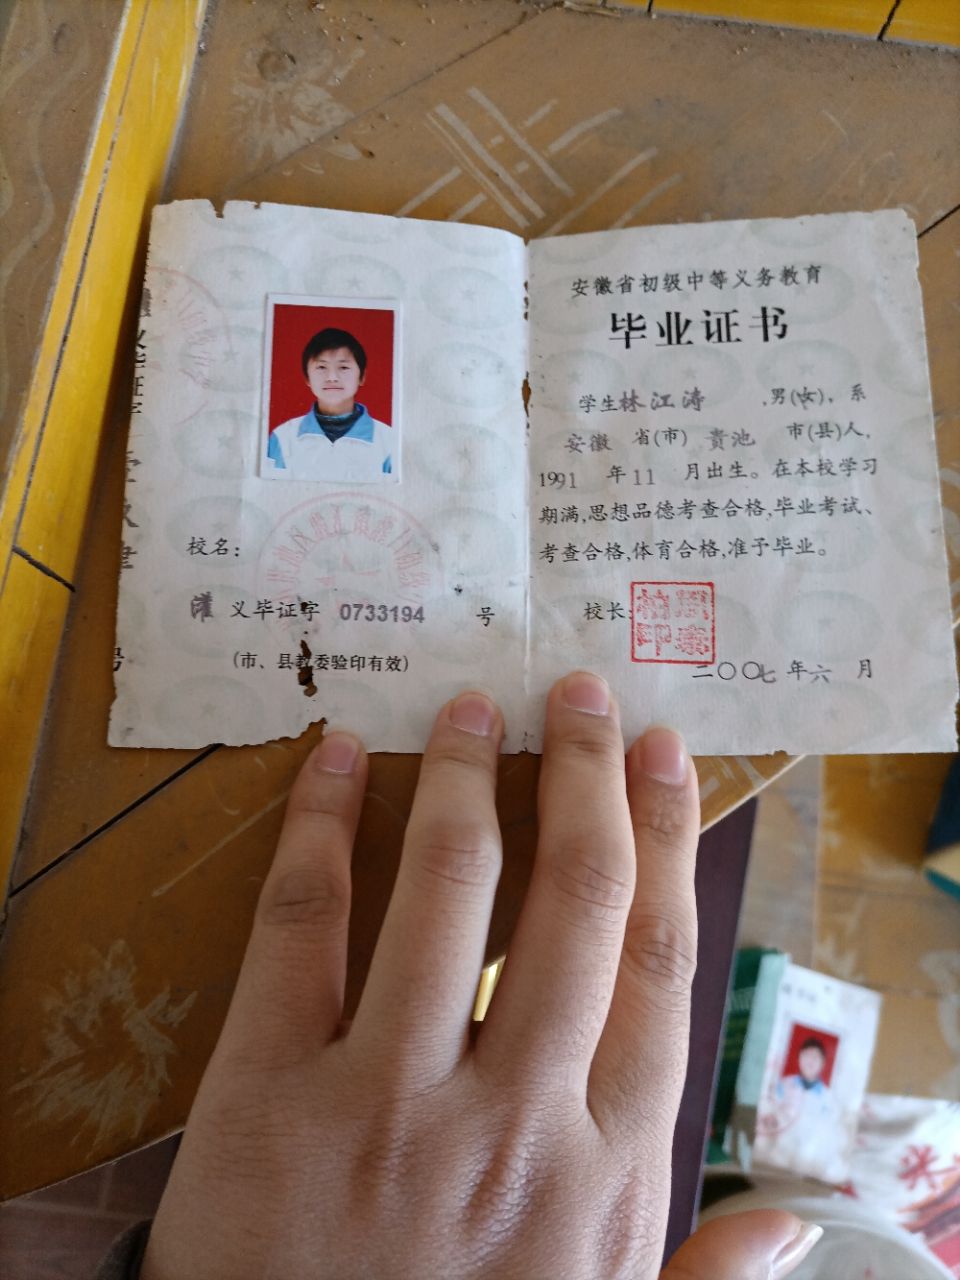 校名：
义毕证字 0733194 号
(市、县教委验印有效)
安徽省初级中等义务教育
毕业证书
学生林江涛,男(女)，系
安徽 省(市) 贵池 市(县)人,
1991 年 11 月出生。在本校学习
期满,思想品德考查合格,毕业考试、
考查合格,体育合格,准予毕业。
校长:
二〇〇七 年 六 月